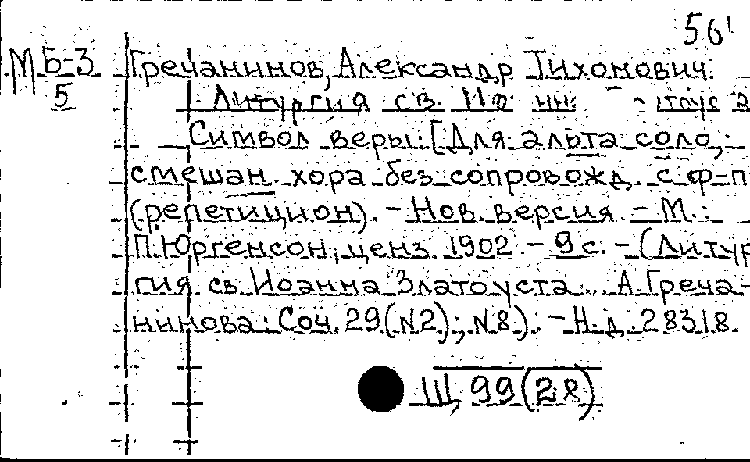 561
М Б-3 Гречанинов, Александр Тихонович.
5 Литургия св.
Символ веры: [Для альта соло,
смешан. хора без сопровожд. с ф-п
(репетицион). - Нов. версия. - М.:
П. Юргенсон, ценз. 1902. - 9 с. - (Литур
гия св. Иоанна Златоуста... А. Греча-
нинова: Соч. 29 (№2); №8). - Н.д. 28318.
Щ 99(28)